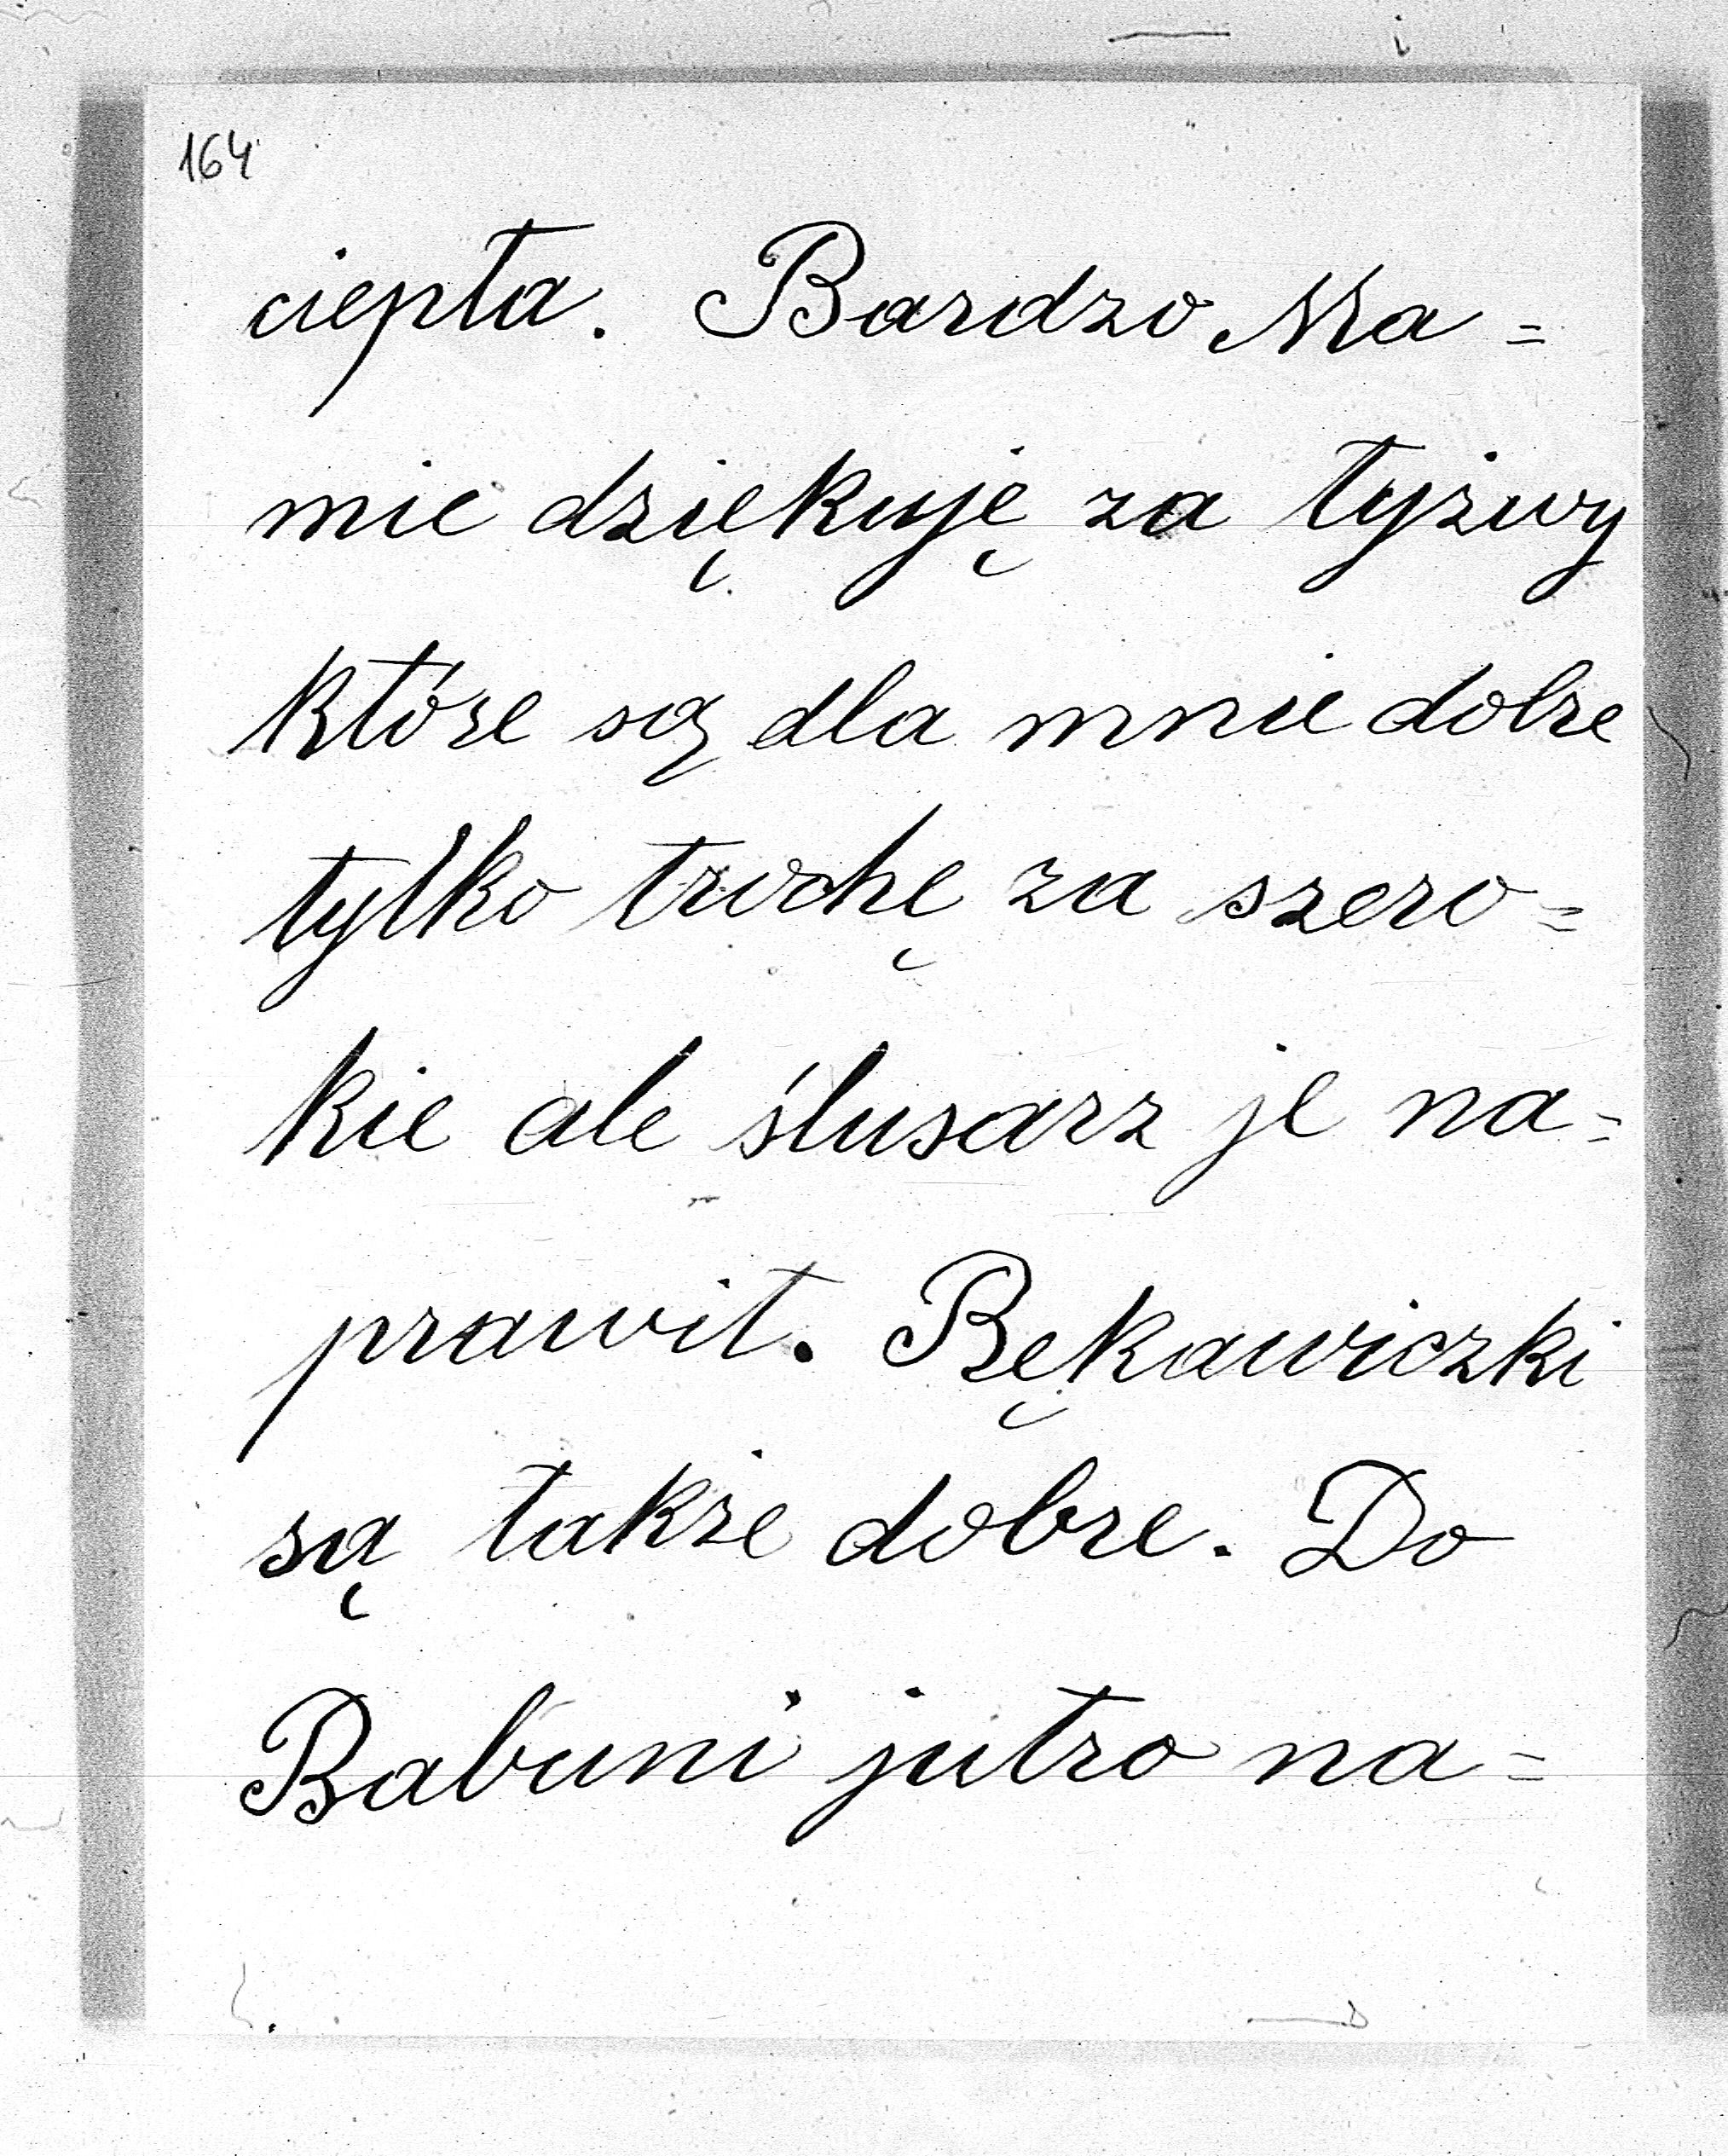 164
ciepła. Bardzo Ma=
mie dziękuję za łyżwy
które są dla mnie dobre
tylko trochę za szero=
kie ale ślusarz je na=
prawił. Rękawiczki
są także dobre. Do
Babuni jutro na=